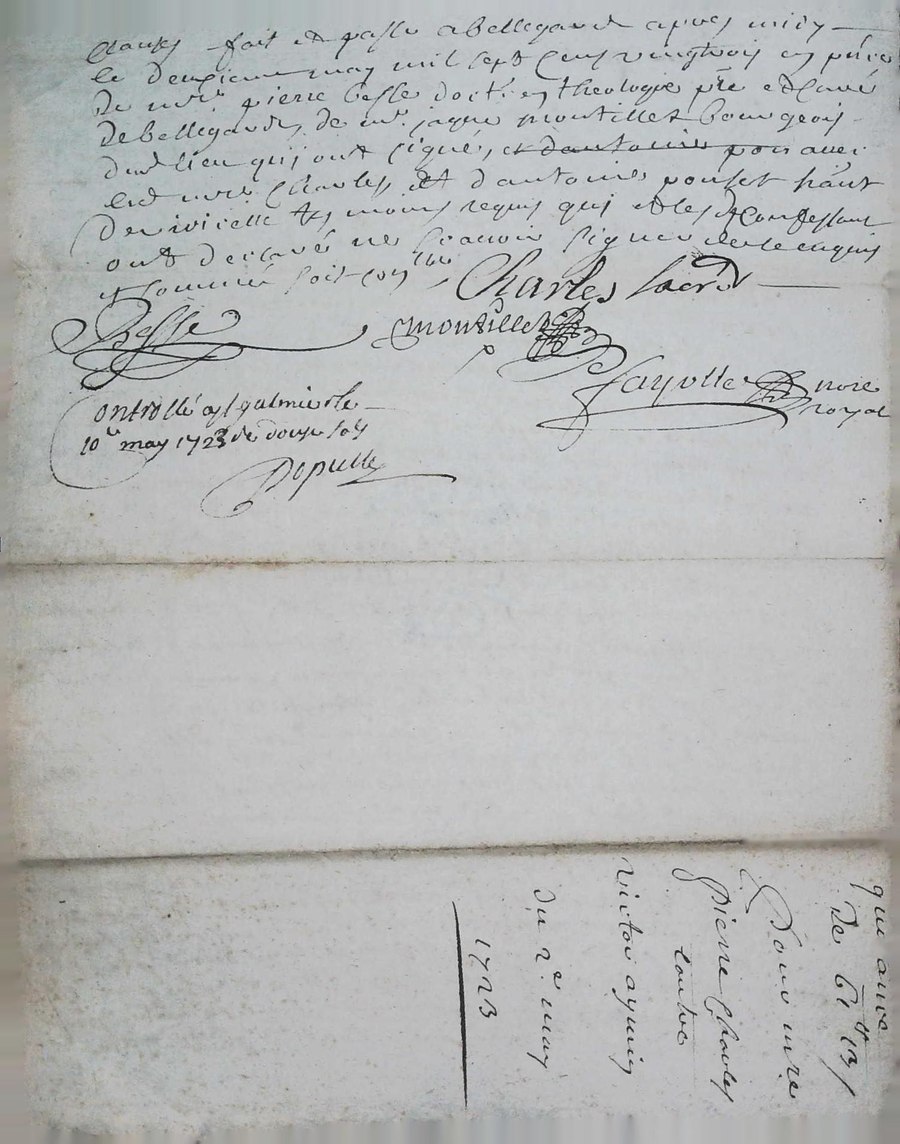 clauses fait et passé a bellegarde apres midy
le deuxieme may mil sept cens vingttrois en pñce
de mre pierre besse doctr en theologie ptre et curé
de bellegarde, de mr jaque montillet bourgeois
dud lieu qui ont signé, et dantoine pon avec
led mre Charles, et dantoine ponset
de tesmoins requis qui et les
ont declaré ne scavoir signer de ce enquis
et sommé soit
Charles
Besse
montillet
Defayolle nore
royal
Controllé a st galmier le
10e may 1723 de douze sols
Dopulle
quittance
De
Pour mre
pierre Charles
contre
victor
du 2e may
1723